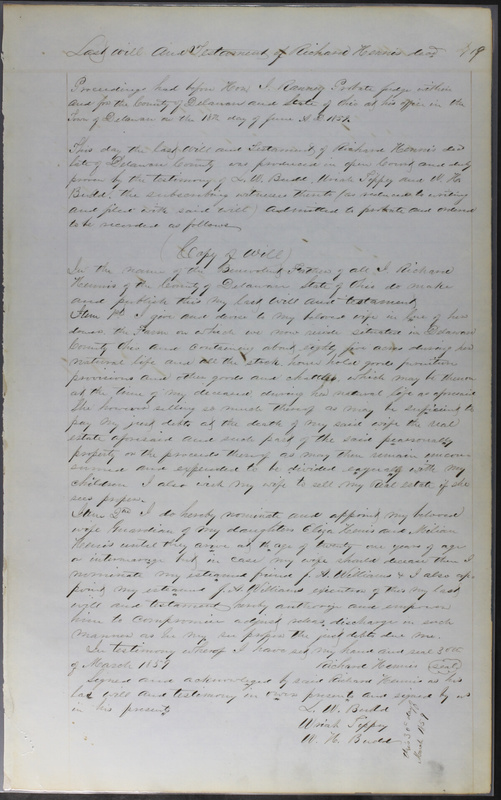 Last Will And Testament of Richard Hennis decd 19
Proceedings had before Hon. J. Ranney Probate Judge within
and for the County of Delaware and State of Ohio at his office in the
Town of Delaware on the 18th day of June A.D. 1859.
This day the last Will and Testament of Richard Hennis decd
late of Delaware County was produced in open Court and duly
proven by the testimony of L. W. Budd, Uriah Tippy and W. H.
Budd, the subscribing witnesses thereto (as reduced to writing
and filed with said will) Admitted to probate and ordered
to be recorded as follows
(Copy of Will)
In the name of the Benevolent Father of all I Richard
Hennis of the County of Delaware State of Ohio do make
and publish this my last Will and testament
Item 1st I give and devise to my beloved wife in lieu of her
dower the Farm on which we now reside situated in Delaware
County Ohio and containing about eighty five acres during her
natural life and all the stock house hold goods furniture
provisions and other goods and chattles which may be thereon
at the time of my decease during her natural life as aforesaid
She however selling so much thereof as may be sufficient to
pay my just debts at the death of my said wife the real
estate aforesaid and such part of the said personal
property or the proceeds thereof as may then remain uncon
sumed and expended to be divided equally with my
children I also wish my wife to sell my real estate if she
sees proper.
Item 2nd I do hereby nominate and appoint my beloved
wife Guardian of my daughters Eliza Hennis and
Hennis until they arrive at the age of twenty one years of age
or intermarriage but in case my wife should decease then I
nominate my esteemed friend J. A. Williams & I also ap
point my esteemed J. A. Williams executor of this my last
will and testament hereby authorize and empower
him to compromise adjust release discharge in such
manner as he may see proper the just debts due me.
In testimony whereof I have set my hand and seal 30th
of March 1859 Richard Hennis (seal)
Signed and acknowledged by said Richard Hennis as his
last will and testimony in our presents and signed by us
in his presents
L. W. Budd
Uriah Tippy
W. H. Budd